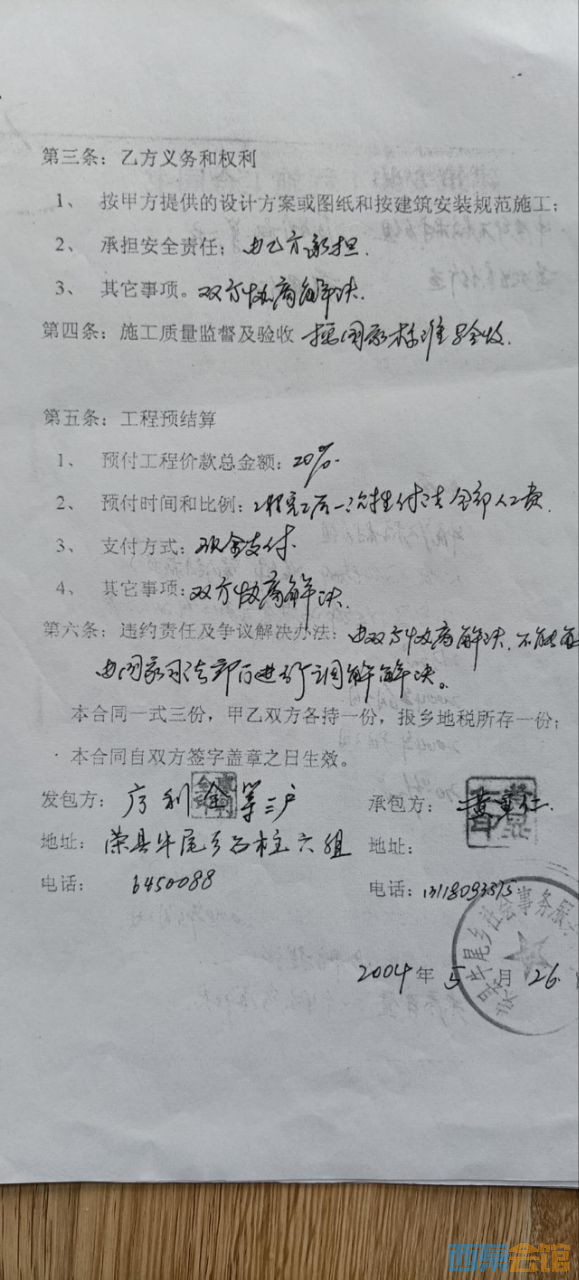 第三条：乙方义务和权利
1、 按甲方提供的设计方案或图纸和按建筑安装规范施工；
2、 承担安全责任；由乙方承担
3、 其它事项。双方协商解决.
第四条：施工质量监督及验收 按国家标准验收.
第五条：工程预结算
1、 预付工程价款总金额：20%.
2、 预付时间和比例：工程完工后一次性付清全部人工费.
3、 支付方式：现金支付.
4、 其它事项：双方协商解决.
第六条：违约责任及争议解决办法：由双方协商解决.不能
由国家司法部门进行调解解决。
本合同一式三份，甲乙双方各持一份，报乡地税所存一份；
本合同自双方签字盖章之日生效。
发包方： 利金等三户 承包方：黄
地址：荣县牛尾乡石柱六组 地址：
电话：6450088 电话：131180
牛尾乡社会事务服
2004年5月26
西泵会馆